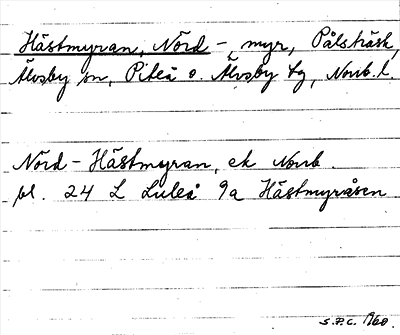 Hästmyran, Nörd -, myr, Pålsträsk,
Älvsby sn, Piteå o. Älvsby tg, Norrb. l.
Nörd - Hästmyran, ek Norrb.
bl. 24 L Luleå 9a Hästmyråsen
S.P.C. 1960.